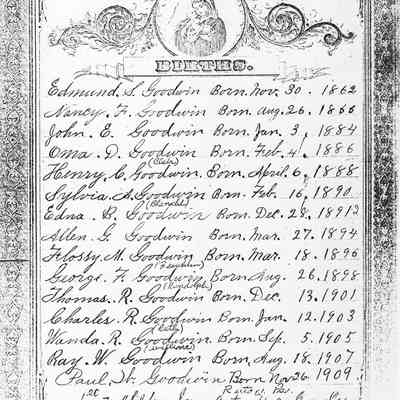 BIRTHS.
Edmund S. Goodwin Born. Nov. 30. 1862
Nancy F. Goodwin Born. Aug. 26. 1866
John E. Goodwin Born. Jan. 3, 1884
Oma D. Goodwin Born. Feb. 4. 1886
Henry C. Goodwin. Born. April. 6, 1888
Sylvia A. Goodwin Born. Feb. 16, 1890
(Blanche)
Edna B. Goodwin Born. Dec. 28, 1891
Allen G. Goodwin Born. Mar. 27. 1894
Flossy M. Goodwin Born. Mar. 18. 1896
George F. Goodwin Born. Aug. 26. 1898
(Randolph)
Thomas. R. Goodwin Born. Dec. 13. 1901
Charles R. Goodwin Born. Jan. 12. 1903
Wanda. R. Goodwin Born. Sep. 5. 1905
Ray. W. Goodwin Born. Aug. 18. 1907
Paul. W. Goodwin Born Nov 26. 1909